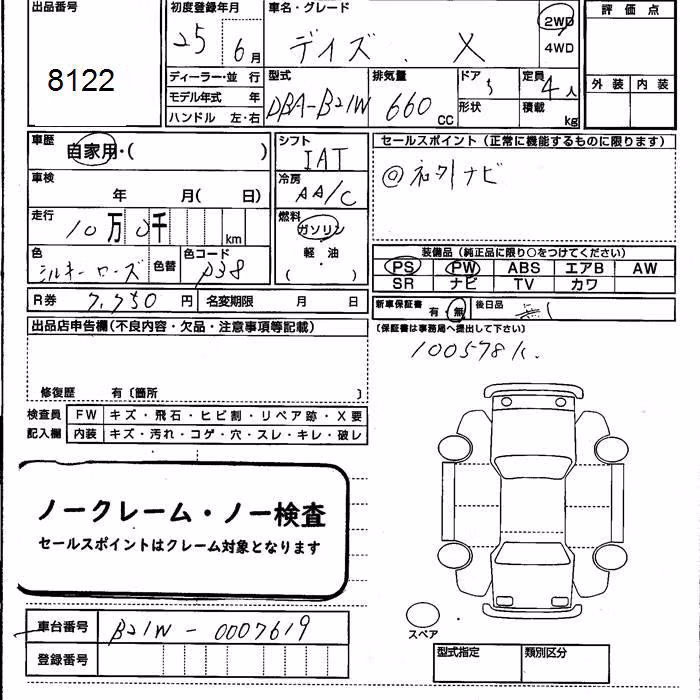 出品番号 初度登録年月 車名・グレード 評価点
8122 25 6月 デイズ . X 2WD
4WD
ディーラー・並行 型式 排気量 ドア 定員 外装 内装
モデル年式 年 DBA-B21W 660 CC 5 4人
ハンドル 左・右 形状 積載 kg
車歴 自家用・( ) シフト セールスポイント(正常に機能するものに限ります)
IAT
車検 冷房 ◎ ナビ
年 月( 日) AA/C
走行 燃料
10万 0千 km ガソリン
色 色替 色コード 軽・油 装備品(純正品に限り○をつけてください)
シルキーローズ P38 ( ) PS PW ABS エアB AW
SR ナビ TV カワ
R券 7,750円 名変期限 月 日 新車保証書 有・無 後日品 無し
出品店申告欄(不良内容・欠品・注意事項等記載) (保証書は事務局へ提出して下さい)
100578K.
修復歴 有〔箇所 〕
検査員 FW キズ・飛石・ヒビ割・リペア跡・X要
記入欄 内装 キズ・汚れ・コゲ・穴・スレ・キレ・破レ
ノークレーム・ノー検査
セールスポイントはクレーム対象となります
車台番号 B21W-0007619
スペア
登録番号 型式指定 類別区分